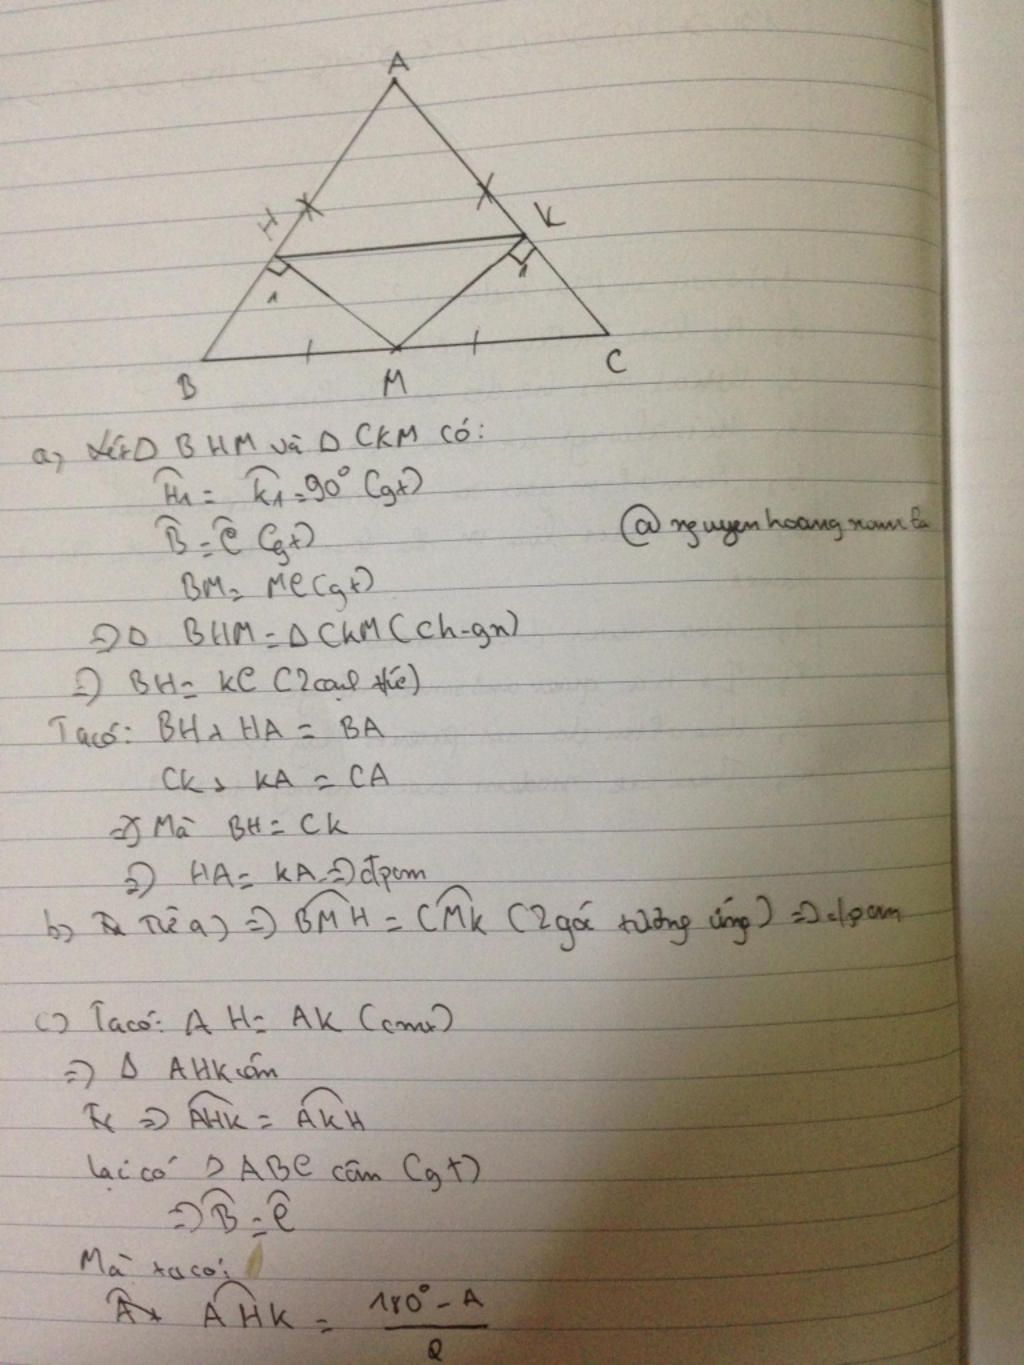 A
H
K
1
1
B
M
C
a) Xét Δ BHM và Δ CKM có:
Ĥ1 = K̂1 = 90° (gt)
B̂ = Ĉ (gt)
@nguyenhoangnam
BM = MC (gt)
=> Δ BHM = Δ CKM (ch-gn)
=> BH = KC (2 cạnh t/ứ)
Ta có: BH + HA = BA
CK + KA = CA
=> Mà BH = CK
=> HA = KA => đpcm
b) Từ a) => BMH = CMK (2 góc tương ứng) => đpcm
c) Ta có: AH = AK (cmt)
=> Δ AHK cân
=> AHK = AKH
Lại có Δ ABC cân (gt)
=> B̂ = Ĉ
Mà ta có:
AHK = 180° - A
2